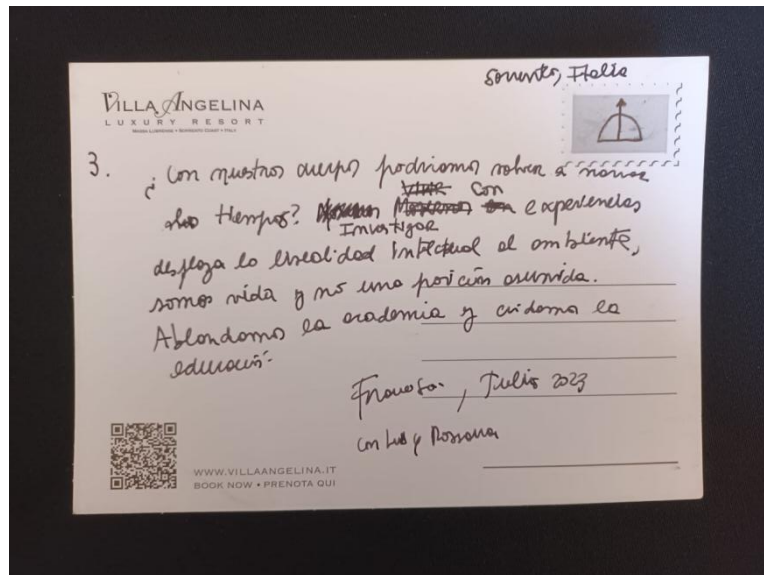 Sorrento, Italia
VILLA ANGELINA
LUXURY RESORT
MASSA LUBRENSE • SORRENTO COAST • ITALY
3.
¿Con nuestros cuerpos podríamos volver a
tiempos? Con
Investigar experiencias
desplaza la linealidad intelectual al ambiente,
somos vida y no una posición asumida.
Ablandamos la academia y cuidamos la
educación.
Julio 2023
con Luis y Rossana
WWW.VILLAANGELINA.IT
BOOK NOW • PRENOTA QUI